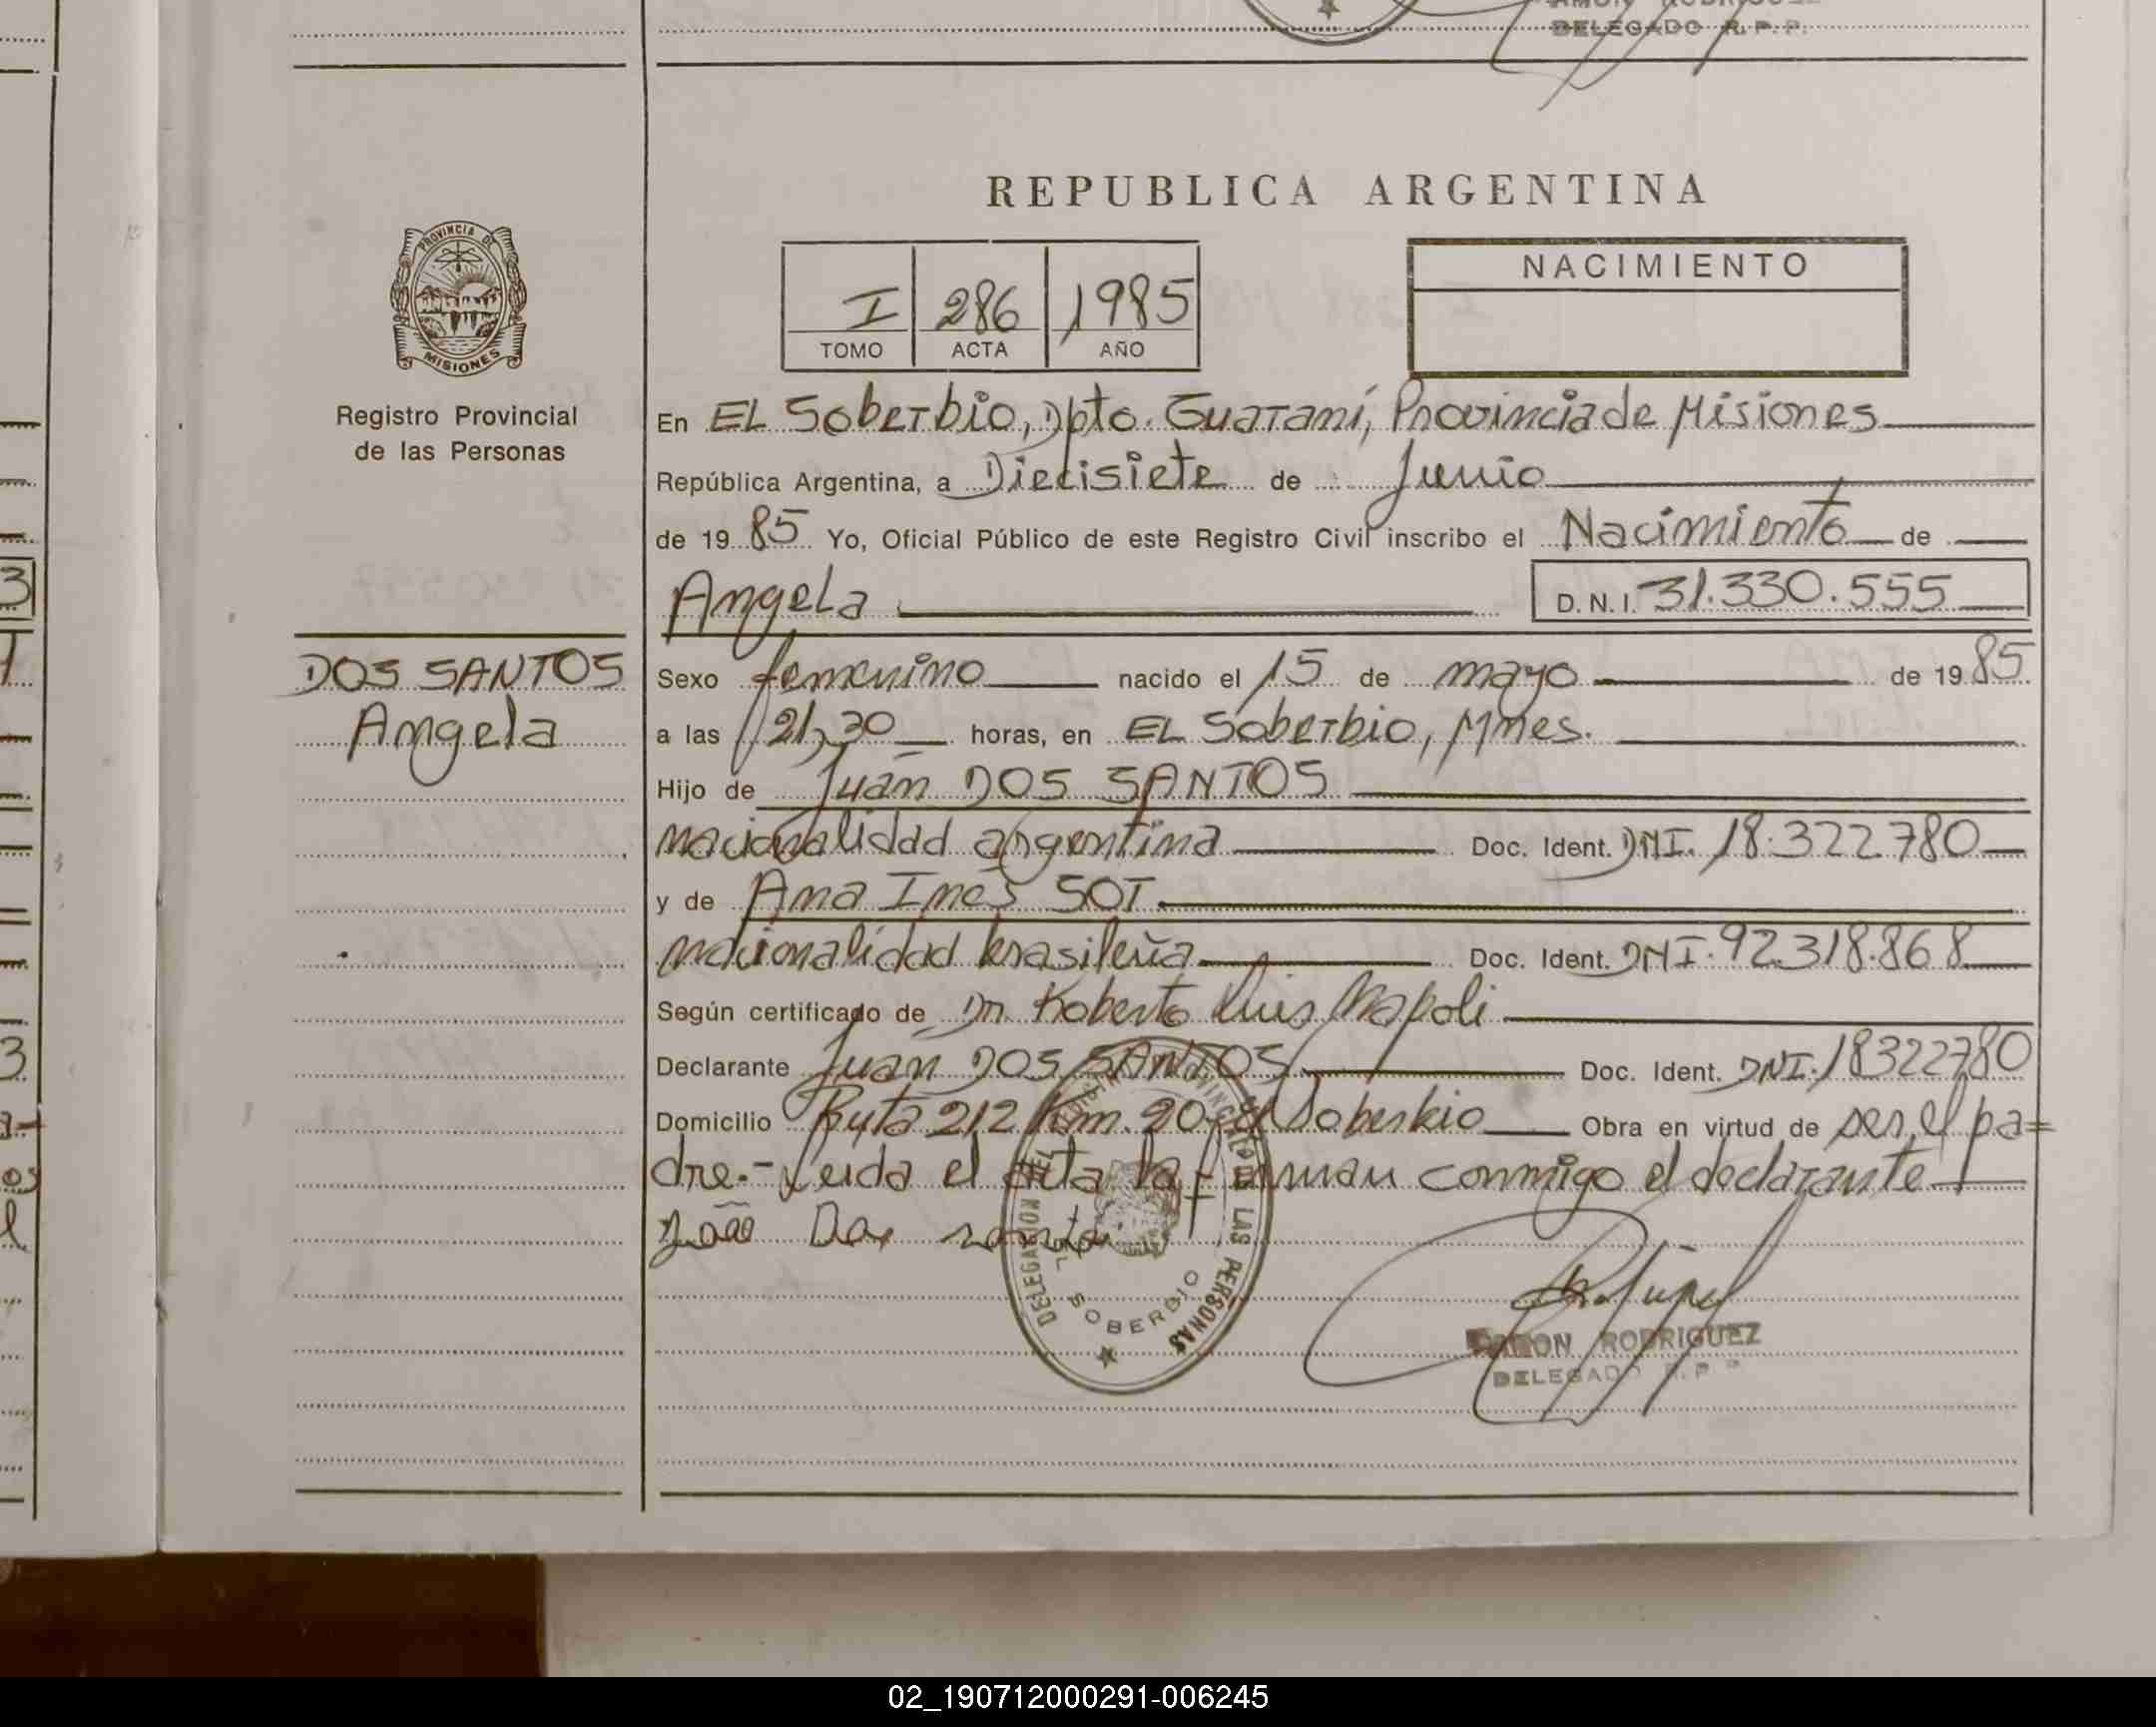 DELEGADO R.P.P.
REPUBLICA ARGENTINA
PROVINCIA DE
MISIONES
Registro Provincial
de las Personas
I 286 1985
TOMO ACTA AÑO
NACIMIENTO
En EL Soberbio, Dpto. Guaraní, Provincia de Misiones
República Argentina, a Diecisiete de Junio
de 19 85 Yo, Oficial Público de este Registro Civil inscribo el Nacimiento de
Angela D.N.I. 31.330.555
DOS SANTOS
Angela
Sexo femenino nacido el 15 de mayo de 19 85
a las 21,30 horas, en EL Soberbio, Mnes.
Hijo de Juan DOS SANTOS
nacionalidad argentina Doc. Ident. DNI. 18.322.780
y de Ana Ines SOT
nacionalidad brasileña Doc. Ident. DNI. 92.318.868
Según certificado de Dr. Roberto Luis Napoli
Declarante Juan DOS SANTOS Doc. Ident. DNI. 18322780
Domicilio Ruta 212 Km. 20 el Soberbio Obra en virtud de ser el pa=
dre.- Leida el acta la firman conmigo el declarante
João Dos santos
DELEGACION DEL REGISTRO PROVINCIAL DE LAS PERSONAS
EL SOBERBIO
RAMON RODRIGUEZ
DELEGADO R.P.P.
02_190712000291-006245